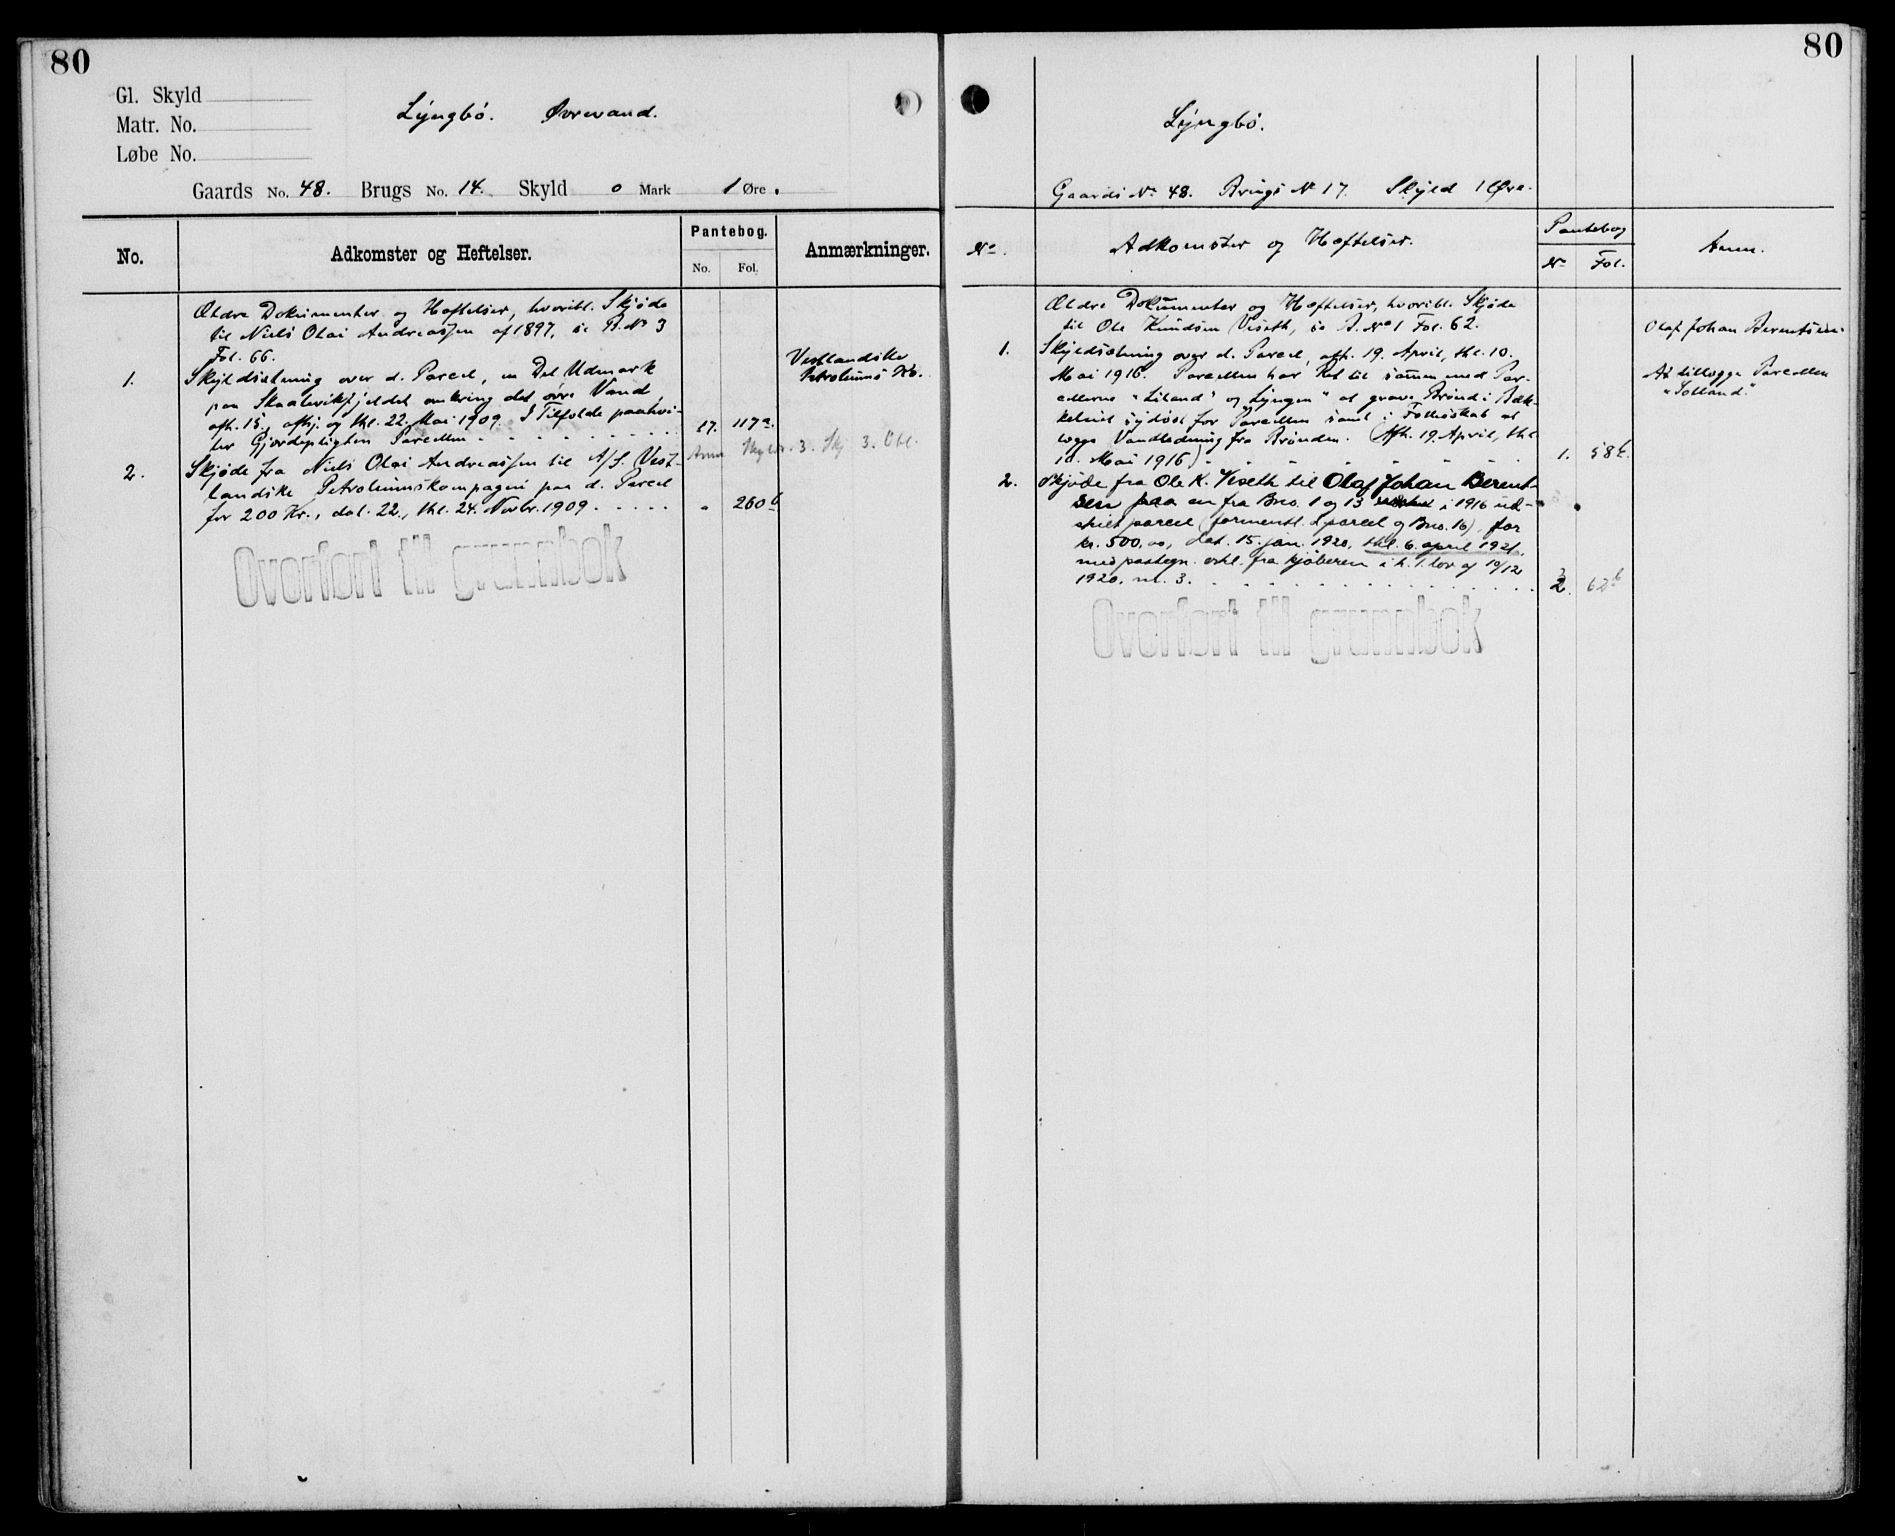 80
Gl. Skyld
Matr. No.
Løbe No.
Lyngbö. Övrevand.
Gaards No. 48. Brugs No. 14. Skyld 0 Mark 1 Øre.
No. Adkomster og Heftelser. Pantebog. No. Fol. Anmærkninger.
Ældre Dokumenter og Hæftelser, hvoribl. Skjøde
til Niels Olai Andreassen af 1897, se B. No 3
Fol. 66.
1. Skyldsætning over d. Parcel, en Del Udmark
paa Skaalevikfjeldet omkring det övre Vand,
afh. 15., afhj. og thl. 22. Mai 1909. I Tilfælde paahvi-
ler Gjerdepligten Parcellen . . . . . . . . 17. 117a.
Vestlandske
Petroleums Ko.
Anm 3. Skj 3. Obl.
2. Skjøde fra Niels Olai Andreassen til A/S. Vest-
landske Petroleumskompagni paa d. Parcel
for 200 Kr., dat. 22., thl. 24. Novbr. 1909 . . . . . " 260b
Overført til grunnbok
80
Lyngbö.
Gaards No 48. Brugs No 17. Skyld 1 Øre.
No. Adkomster og Hæftelser. Pantebog No Fol. Anm.
Ældre Dokumenter og Hæftelser, hvoribl. Skjøde
til Ole Knudsen Viseth, se B. No 1 Fol. 62.
Olaf Johan Berentsen.
1. Skyldsætning over d. Parcel, afh. 19. April, thl. 10.
Mai 1916. Parcellen har Ret til sammen med Par-
cellerne "Liland" og Lyngen" at grave Brönd i Bæk-
kelniet sydöst for Parcellen samt i Fællesskab at
lægge Vandledning fra Brönden. (Afh. 19. April, thl.
10. Mai 1916) . . . . . . . . 1. 58b.
At tillægge Parcellen
"Solland."
2. Skjøde fra Ole K. Viseth til Olaf Johan Berent-
sen paa en fra Bno. 1 og 13 i 1916 ud-
skilt parcel (formentl. d. parcel og Bno. 16), for
kr. 500,00, dat. 15. jan. 1920, thl. 6. april 1921,
med paategn. erkl. fra kjøberen i h. t. lov af 10/12
1920. nr. 3. . . . . . . . . . . . 2. 62b
Overført til grunnbok